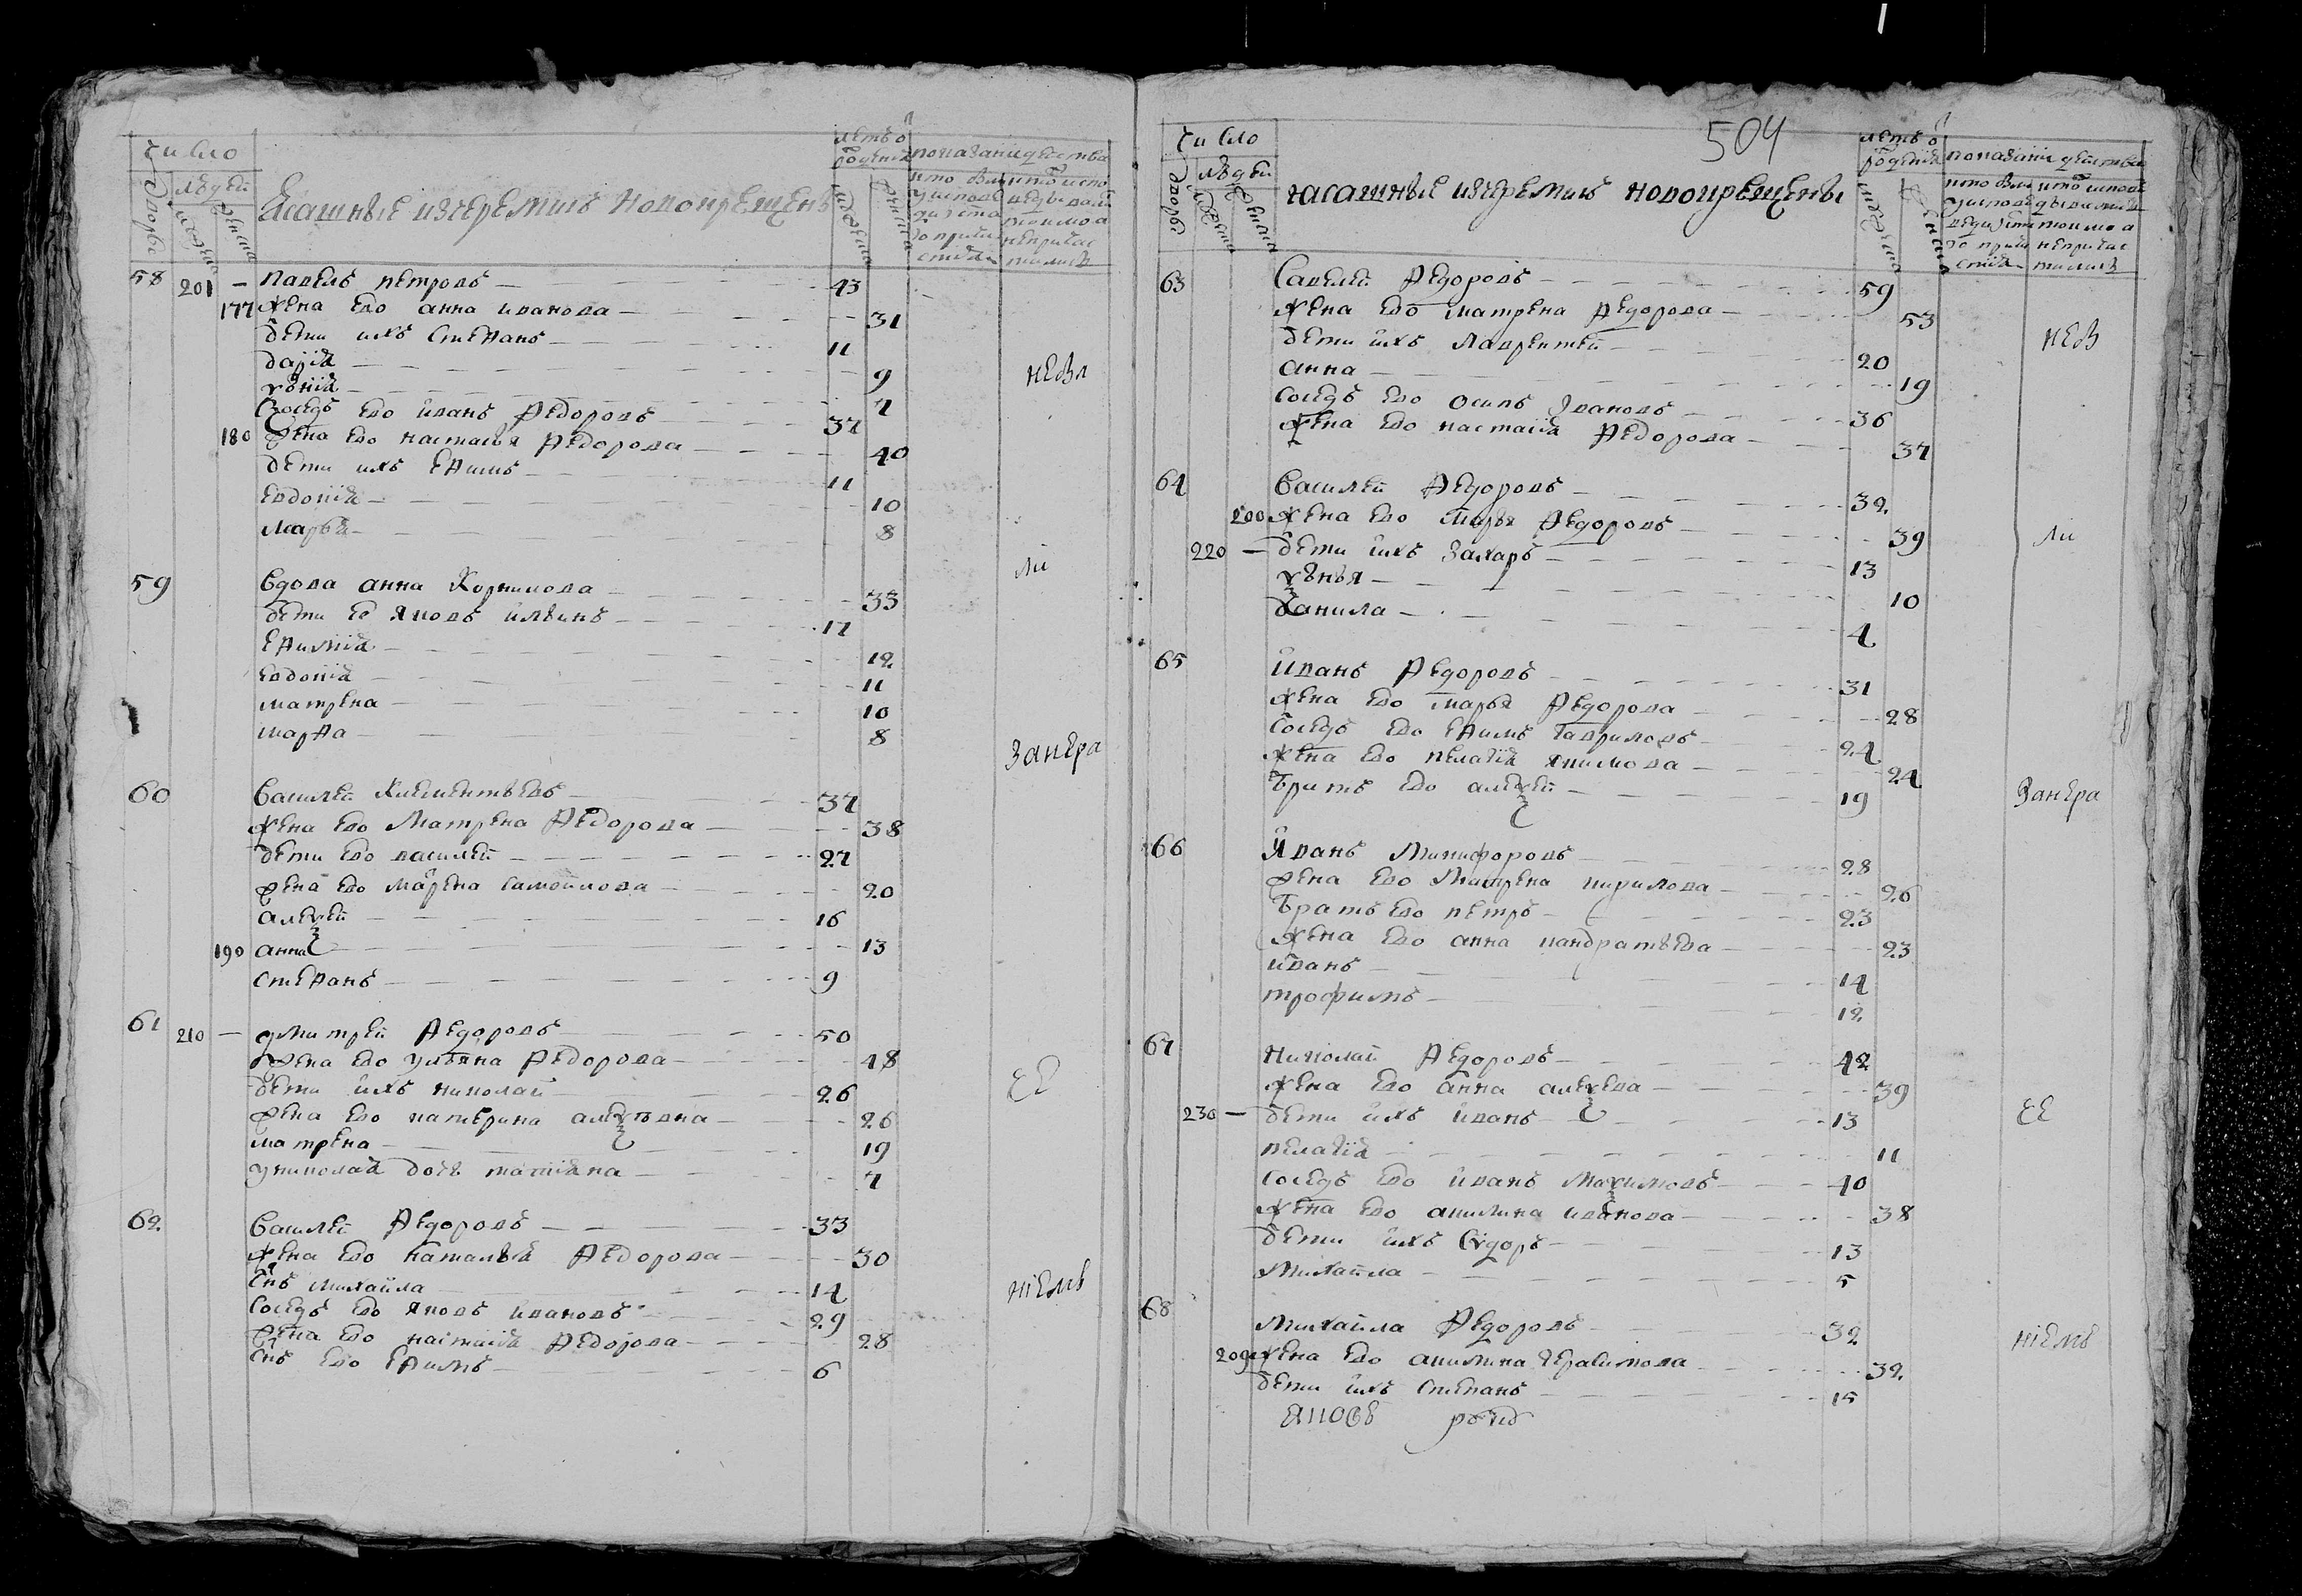 число
людей
дворы
мужеска
женска
Ясашные изчеремис новокрещены
летъ о рождения
мужеска
женска
показание действа
58 201 — Павелъ Петровъ — 43
177 жена ево Анна Иванова — 31
дети ихъ Стефанъ — 11
Дарiя — 9
ѯѣнiя — 7
Соседъ ево Иванъ Федоровъ 37
180 жена ево Настасья Федорова — 40
дети ихъ Ефимъ — 11
Евдокiя — 10
Марья — 8
невл
59 Вдова Анна Корнилова — 33
дети ее Яковъ Ильинъ — 17
Ефимiя — 12
Евдокiя — 11
Матрена — 10
Марфа — 8
ли
60 Василей Клементьевъ — 37
жена ево Матрена Федорова — 38
дети ево Василей — 27
жена ево Матрена Самойлова — 20
Алеѯей — 16
190 Анна — 13
Стефанъ — 9
занера
61 210 — Дмитрей Федоровъ 50
жена ево Ульяна Федорова — 48
дети ихъ Николай — 26
жена ево Катерина Алеѯѣвна — 26
Матрена — 19
у Николая дочь Татiяна — 7
ее
62 Василей Федоровъ — 33
жена ево Наталья Федорова — 30
снъ Михайла — 14
Соседъ ево Яковъ Ивановъ — 29
жена ево Настасiя Федорова — 28
снъ ево Ефимъ — 6
нiемъ
504
число
людей
дворы
мужеска
женска
Ясашные изчеремисъ новокрещены
летъ о рождения
мужеска
женска
показание действа
63 Савелей Федоровъ — 59
жена ево Матрена Федорова — 53
дети ихъ Лаврентей — 20
Анна — 19
Соседъ ево Осипъ Ивановъ — 36
жена ево Настасiя Федорова — 37
нев
64 Василей Федоровъ — 32
200 жена ево Марья Федоровъ — 39
220 — дети ихъ Захаръ — 13
ѯѣнья — 10
Данила — 4
ли
65 Иванъ Федоровъ — 31
жена ево Марья Федорова — 28
Соседъ ево Ефимъ Гавриловъ — 24
жена ево Пелагiя Якимова — 24
братъ ево Алеѯей — 19
занера
66 Иванъ Микифоровъ — 28
жена ево Матрена Кирилова — 26
братъ ево Петръ — 23
жена ево Анна Кандратьева — 23
Иванъ — 14
Трофимъ — 12
67 Николай Федоровъ — 42
жена ево Анна Алеѯева — 39
230 — дети ихъ Иванъ — 13
Пелагiя — 11
Соседъ ево Иванъ Маѯимовъ — 40
жена ево Акилина Иванова — 38
дети ихъ Сидоръ — 13
Михайла — 5
ее
68 Михайла Федоровъ 32
209 жена ево Акилина Герасимова 32
дети ихъ Степанъ — 15
нiемъ